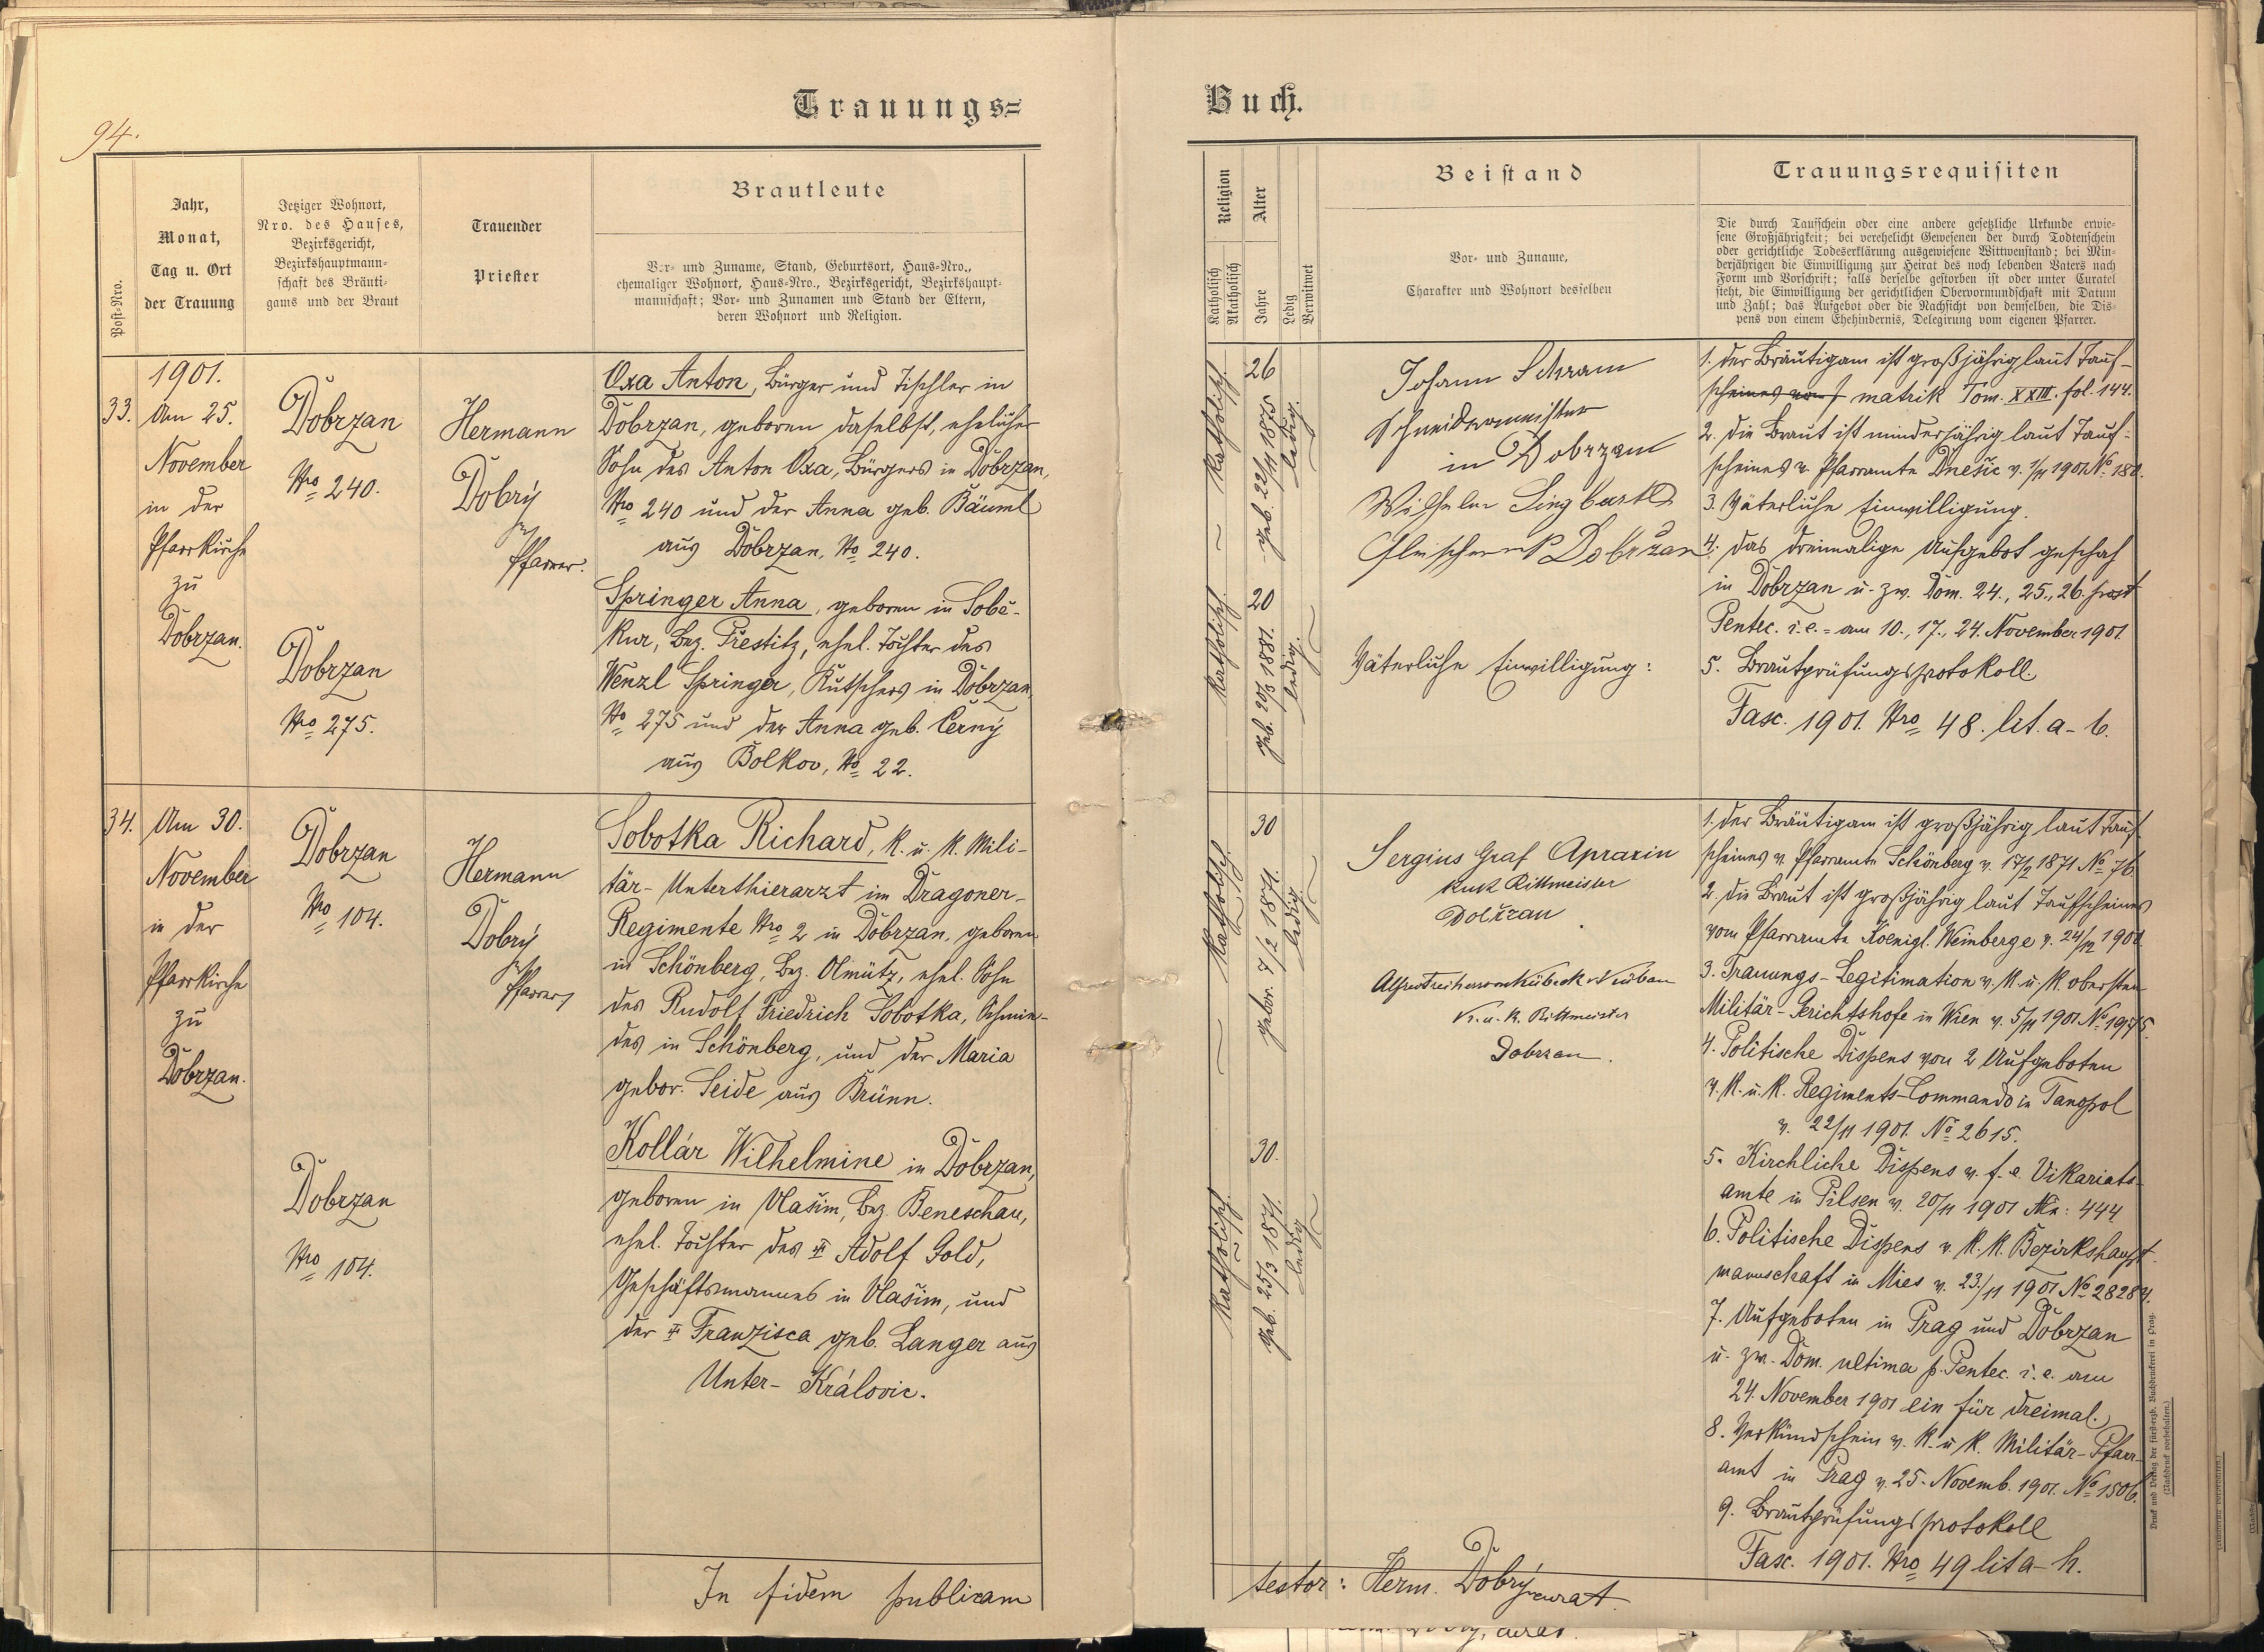 94.
Trauungs=
Post-Nro.
Jahr,
Monat,
Tag u. Ort
der Trauung
Jetziger Wohnort,
Nro. des Hauses,
Bezirksgericht,
Bezirkshauptmann-
schaft des Bräuti-
gams und der Braut
Trauender
Priester
Brautleute
Vor- und Zuname, Stand, Geburtsort, Haus-Nro.,
ehemaliger Wohnort, Haus-Nro., Bezirksgericht, Bezirkshaupt-
mannschaft; Vor- und Zunamen und Stand der Eltern,
deren Wohnort und Religion.
33.
1901.
Am 25.
November
in der
Pfarrkirche
zu
Dobrzan.
Dobrzan
Nro 240.
Dobrzan
Nro 275.
Hermann
Dobrý
Pfarrer.
Oxa Anton, Bürger und Tischler in
Dobrzan, geboren daselbst, ehelicher
Sohn des Anton Oxa, Bürgers in Dobrzan,
Nro 240 und der Anna geb. Bäuml
aus Dobrzan, No 240.
Springer Anna, geboren in Sobě-
kur, Bez. Přestitz, ehel. Tochter des
Wenzl Springer, Kutschers in Dobrzan,
No 275 und der Anna geb. Černý
aus Bolkov, No 22.
34.
Am 30.
November
in der
Pfarrkirche
zu
Dobrzan.
Dobrzan
Nro 104.
Dobrzan
Nro 104.
Hermann
Dobrý
Pfarrer
Sobotka Richard, k. u. k. Mili-
tär-Unterthierarzt im Dragoner-
Regimente Nro 2 in Dobrzan, geboren
in Schönberg, Bez. Olmütz, ehel. Sohn
des Rudolf Friedrich Sobotka, Schmie-
des in Schönberg, und der Maria
gebor. Seide aus Brünn.
Kollár Wilhelmine in Dobrzan,
geboren in Vlašim, Bez. Beneschau,
ehel. Tochter des Adolf Gold,
Geschäftsmannes in Vlašim, und
der Franzisca geb. Langer aus
Unter-Královic.
In fidem publicam
Buch.
Religion
Katholisch
Akatholisch
Alter
Jahre
Ledig
Verwitwet
Beistand
Vor- und Zuname,
Charakter und Wohnort desselben
Trauungsrequisiten
Die durch Taufschein oder eine andere gesetzliche Urkunde erwie-
sene Großjährigkeit; bei verehelicht Gewesenen der durch Todtenschein
oder gerichtliche Todeserklärung ausgewiesene Wittwenstand; bei Min-
derjährigen die Einwilligung zur Heirat des noch lebenden Vaters nach
Form und Vorschrift; falls derselbe gestorben ist oder unter Curatel
steht, die Einwilligung der gerichtlichen Obervormundschaft mit Datum
und Zahl; das Aufgebot oder die Nachsicht von demselben, die Dis-
pens von einem Ehehindernis, Delegirung vom eigenen Pfarrer.
Katholisch.
26
geb. 22/11 1875
ledig.
Katholisch.
20
geb. 20/3 1881.
ledig.
Johann Schram
Schneidermeister
in Dobrzan
Wilhelm
Dobrzan
Väterliche Einwilligung:
1. Der Bräutigam ist großjährig laut Tauf-
scheines matrik Tom. XXIII. fol. 144.
2. Die Braut ist minderjährig laut Tauf-
scheines v. Pfarramte Dnešic v. 1/11 1901 No 180.
3. Väterliche Einwilligung.
4. Das dreimalige Aufgebot geschah
in Dobrzan u. zw. Dom. 24., 25., 26. post
Pentec. i. e. = am 10., 17., 24. November 1901
5. Brautprüfungsprotokoll.
Fasc. 1901. Nro 48. lit. a-b.
Katholisch.
30
gebor. 7/2 1871.
ledig
Katholisch.
30.
geb. 25/3 1871.
ledig
Sergius Graf Apraxin
kuk Rittmeister
Dobrzan
Alfred Freiherr von Kübeck
k. u. k. Rittmeister
Dobrzan.
1. Der Bräutigam ist großjährig laut Tauf-
scheines v. Pfarramte Schönberg v. 17/2 1871 No 76.
2. Die Braut ist großjährig laut Taufscheines
vom Pfarramte Koenigl. Weinberge v. 24/12 1900.
3. Trauungs-Legitimation v. k. u. k. obersten
Militär-Gerichtshofe in Wien v. 5/11 1901 No 1975.
4. Politische Dispens von 2 Aufgeboten
v. k. u. k. Regiments-Commando in
v. 22/11 1901. No 2615.
5. Kirchliche Dispens v. f. e. Vikariats-
amte in Pilsen v. 20/11 1901 Nr: 444
6. Politische Dispens v. k. k. Bezirkshaupt-
mannschaft in Mies v. 23/11 1901 No 28284.
7. Aufgeboten in Prag und Dobrzan
u. zw. Dom. ultima p. Pentec. i. e. am
24. November 1901 ein für dreimal.
8. Verkündschein v. k. u. k. Militär-Pfarr-
amt in Prag v. 25. Novemb. 1901. No 1506.
9. Brautprüfungsprotokoll
Fasc. 1901. Nro 49 lit a-h.
testor: Herm. Dobrý curat.
Druck und Verlag der fürsterzb. Buchdruckerei in Prag.
(Nachdruck vorbehalten.)